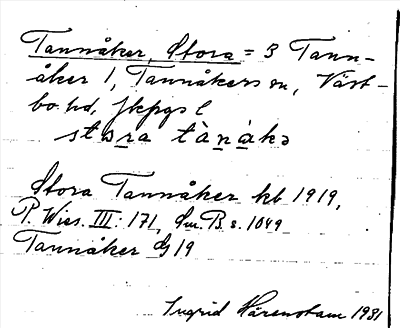 Tannåker, Stora = 3 Tann-
åker 1, Tannåkers sn, Väst-
bo hd, Jkpgs l
stora tànákə
Stora Tannåker kb 1919,
P. Wies. III: 171, Sm. B. s. 1049
Tannåker G 19
Ingrid Härenstam 1931